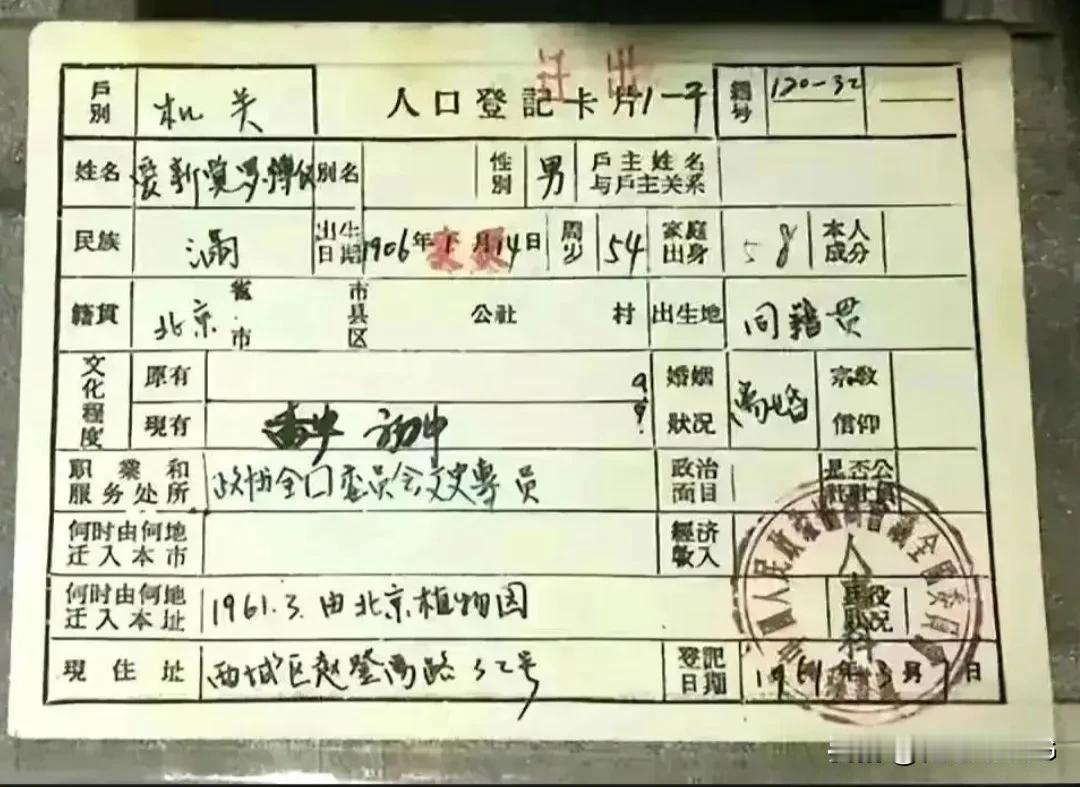 迁出
戶別 机关 人口登記卡片 1-平 編号 120-32
姓名 爱新觉罗.溥仪 別名 性別 男 戶主姓名与戶主关系
民族 满 出生日期 1906年1月14日 变更 周岁 54 家庭出身 58 本人成分
籍貫 北京 省市 市县区 公社 村 出生地 同籍贯
文化程度 原有 婚姻狀况 离婚 宗敎信仰
現有 高中 初中
职業和服务处所 政协全囗委员会文史專员 政治面目 是否公社社員
何时由何地迁入本市 經济收入
何时由何地迁入本址 1961.3.由北京植物园 兵役狀况
現住址 西城区赵登禹路32号 登記日期 1961年3月7日
中國人民政治協商會議全國委員會
人事科